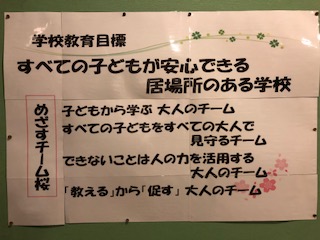 学校教育目標
すべての子どもが安心できる
居場所のある学校
めざすチーム桜
子どもから学ぶ 大人のチーム
すべての子どもをすべての大人で
見守るチーム
できないことは人の力を活用する
大人のチーム
「教える」から「促す」 大人のチーム